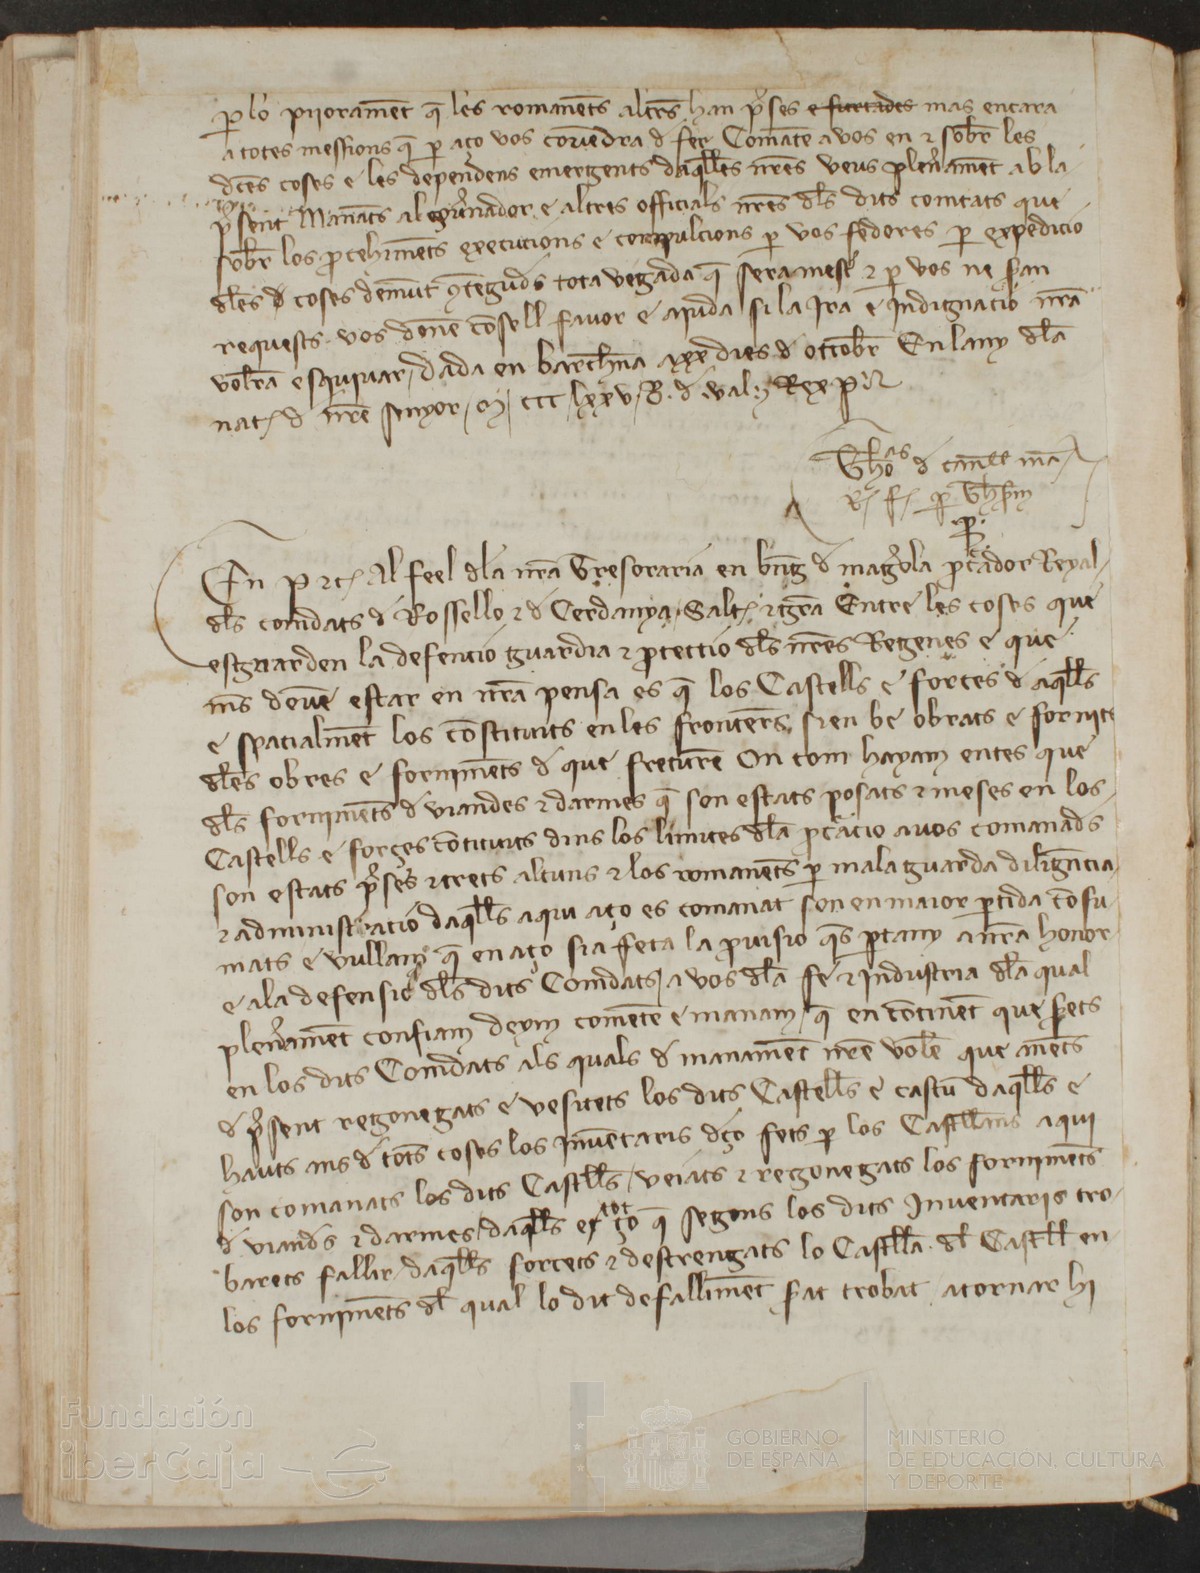 per lo pijorament q̄ les romanents altrs han p̄ses e furtades mas encara
a totes messions q̄ per aço vos covendra d fer Comāte a vos en z sobr les
dc̄es coses e les dependens emergents daq̄lles nr̄es veus plenament ab la
p̄sent Manāts al gov̄nador e altres officials nr̄es dls dits comtats que
sobr los p̄cehimēts execucions e compulcions p vos fedores p expedicio
dles d coses demūt ꝯtegudes tota vegada q̄ sera mest z p vos ne s̄an
requests vos donē cōsell favor e ajuda si la ira e indignacio nr̄a
volr̄a esquivar / dada en barchna xxx dies d octobr En lany dla
nat d nr̄e senyor / M / ccc / lxxv / B. d val. Rex p
En P zc Al feel dla nr̄a Tresoraria en bn̄g d mag̃ola p̄cador Reyal
dls comdats d Rossello z d Cerdanya Salt z gr̄a Entre les coses que
esguarden la defencio guardia z p̄teccio dls nr̄es Regenes e que
ms deue estar en nr̄a pensa es q̄ los Castells e forces d aq̄lls
e spacialmēt los cōstituits en les fronters, sien be obrats e fornits
dles obres e fornimēts d que freturē On com hayam entes que
dls fornimēts d viandes z darmes q̄ son estats posats z meses en los
Castells e forçes cōtituits dins los limites dla p̄cacio a vos comanads
son estats p̄ses z trets alcuns z los romanēts p mala guarda diligēncia
z administracio daq̄lls a qui aço es comanat son en maior p̄tida cōsu-
mats e vullam q̄ en aço sia feta la p̄visio q̄s p̄tany a nr̄a honor
e a la defensio dls dits Comdats / a vos dla fe z industria dla qual
plenament confiam deym cometē e manam / q̄ en cōtinēt que s̄ets
en los dits Comdats als quals d manamēt nr̄e volē que anets
d p̄sent regonegats e vesitets los dits Castells e cascū daq̄lls e
hauts ms d tots coses los inventaris dço fets p los Castllans a qui
son comanats los dits Castlls / veiats z regonegats los fornimēts
d viands z darmes / daq̄lls e tot ço q̄ segons los dits Inventaris tro-
barets fallir / daq̄lls forcets z destrengats lo Castlla dl Castll en
los fornimēts dl qual lo dit defallimēt s̄at trobat a tornar hi
Fundación
iberCaja
GOBIERNO
DE ESPAÑA
MINISTERIO
DE EDUCACIÓN, CULTURA
Y DEPORTE